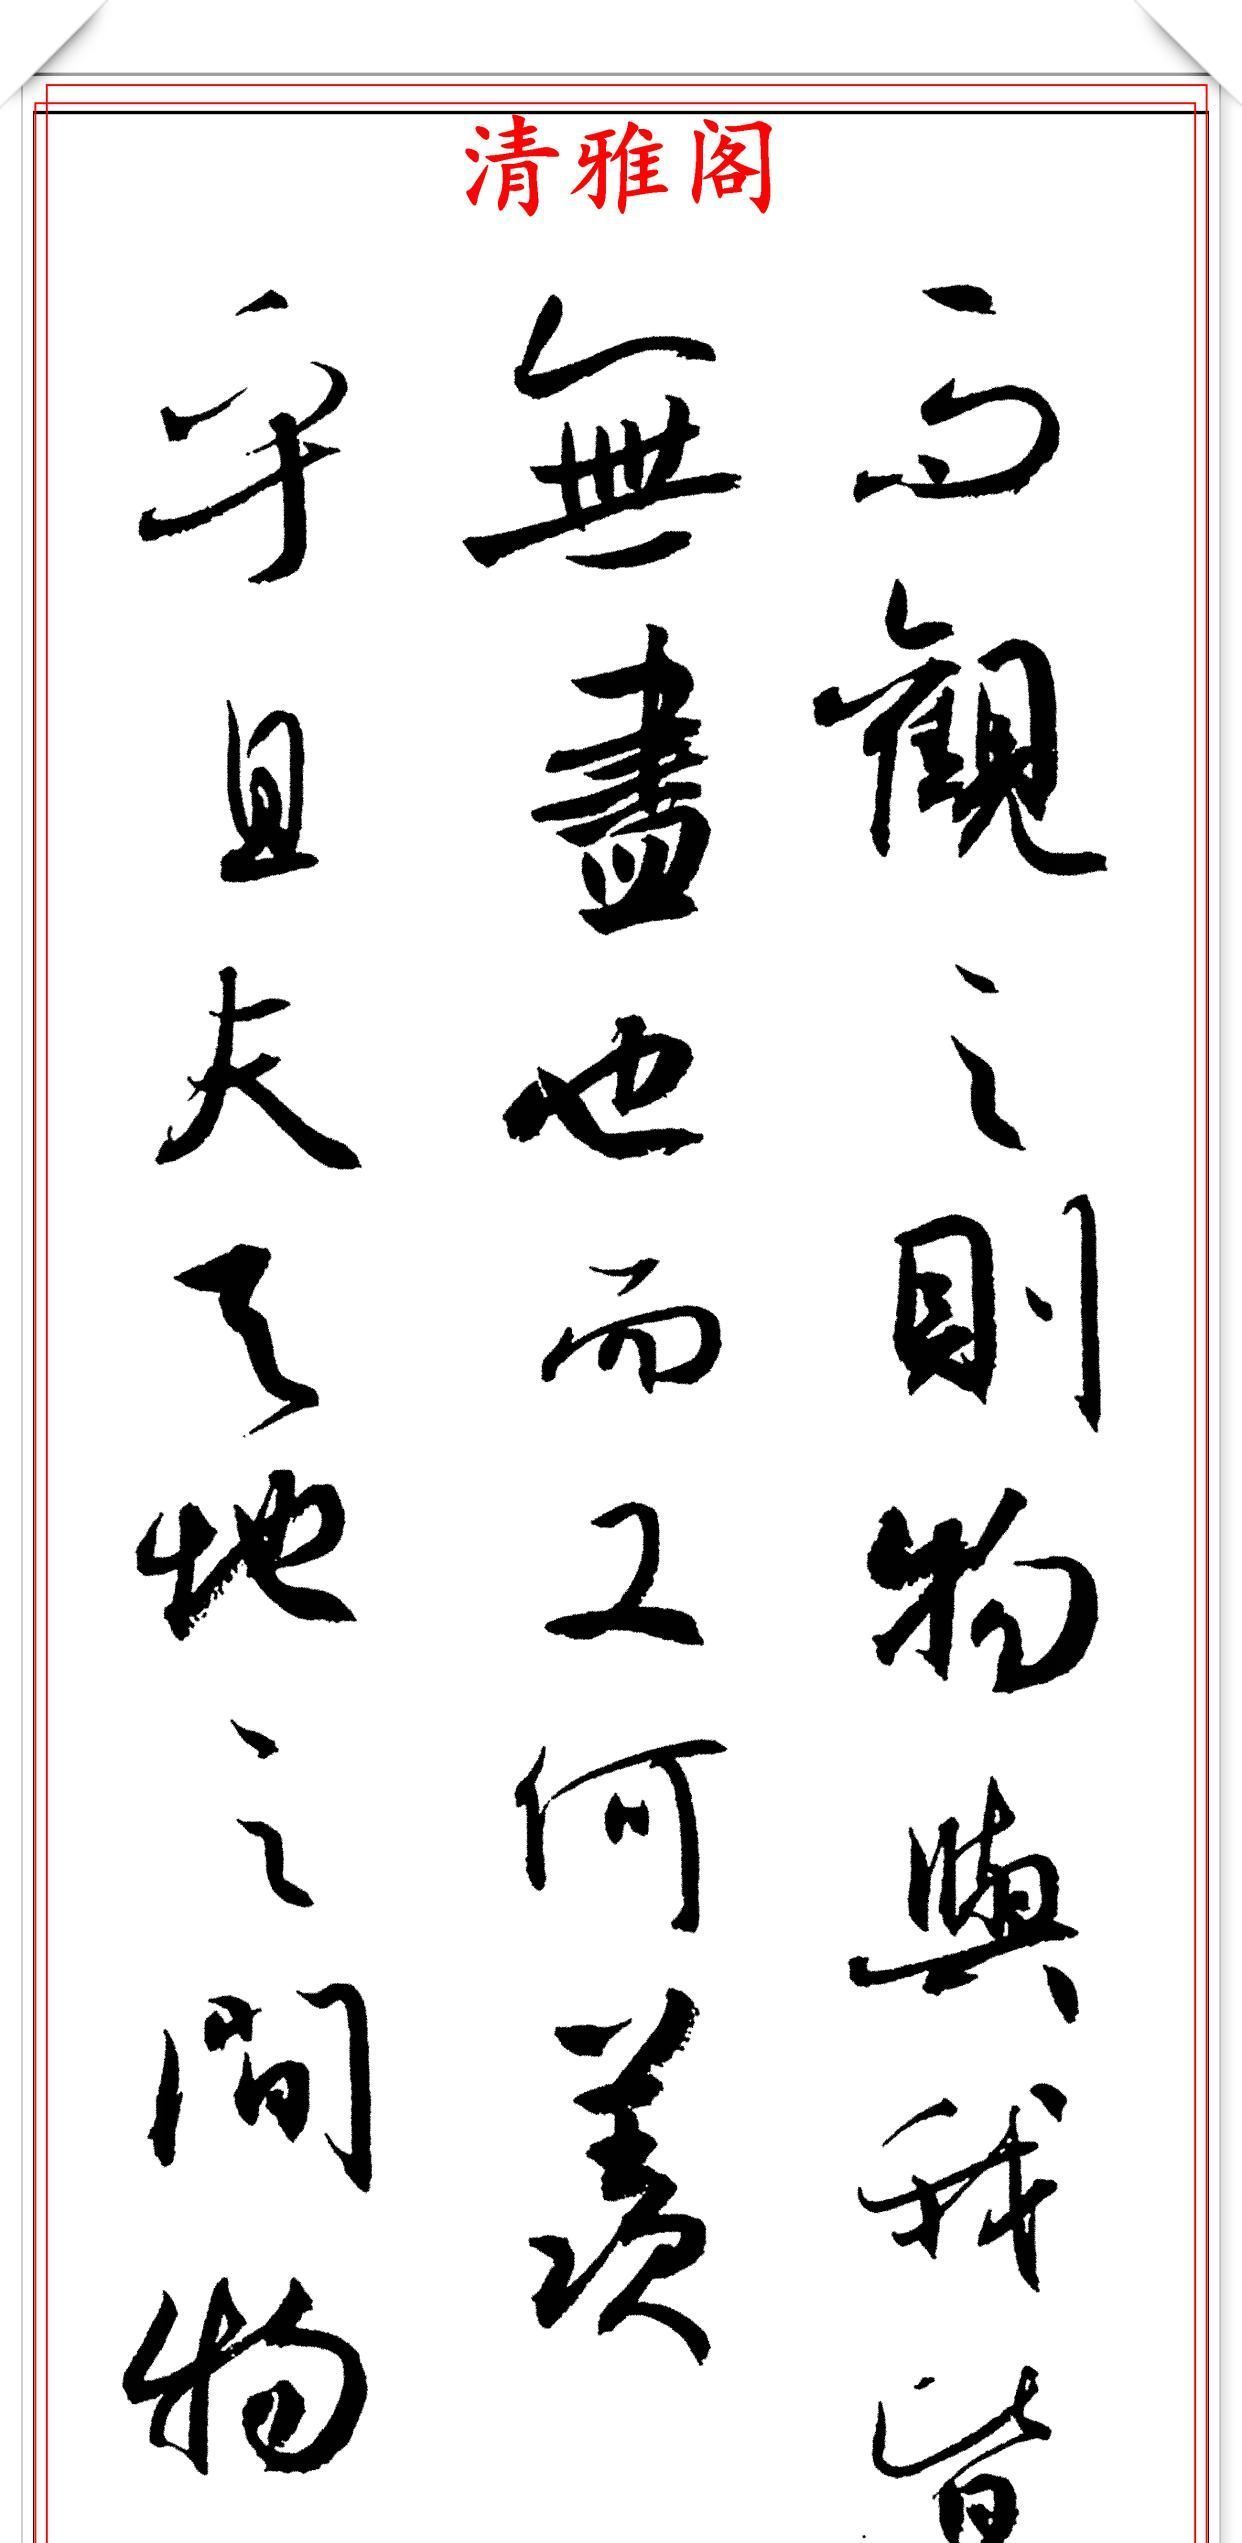 清雅阁
而觀之則物與我皆
無盡也而又何羨
乎且夫天地之間物